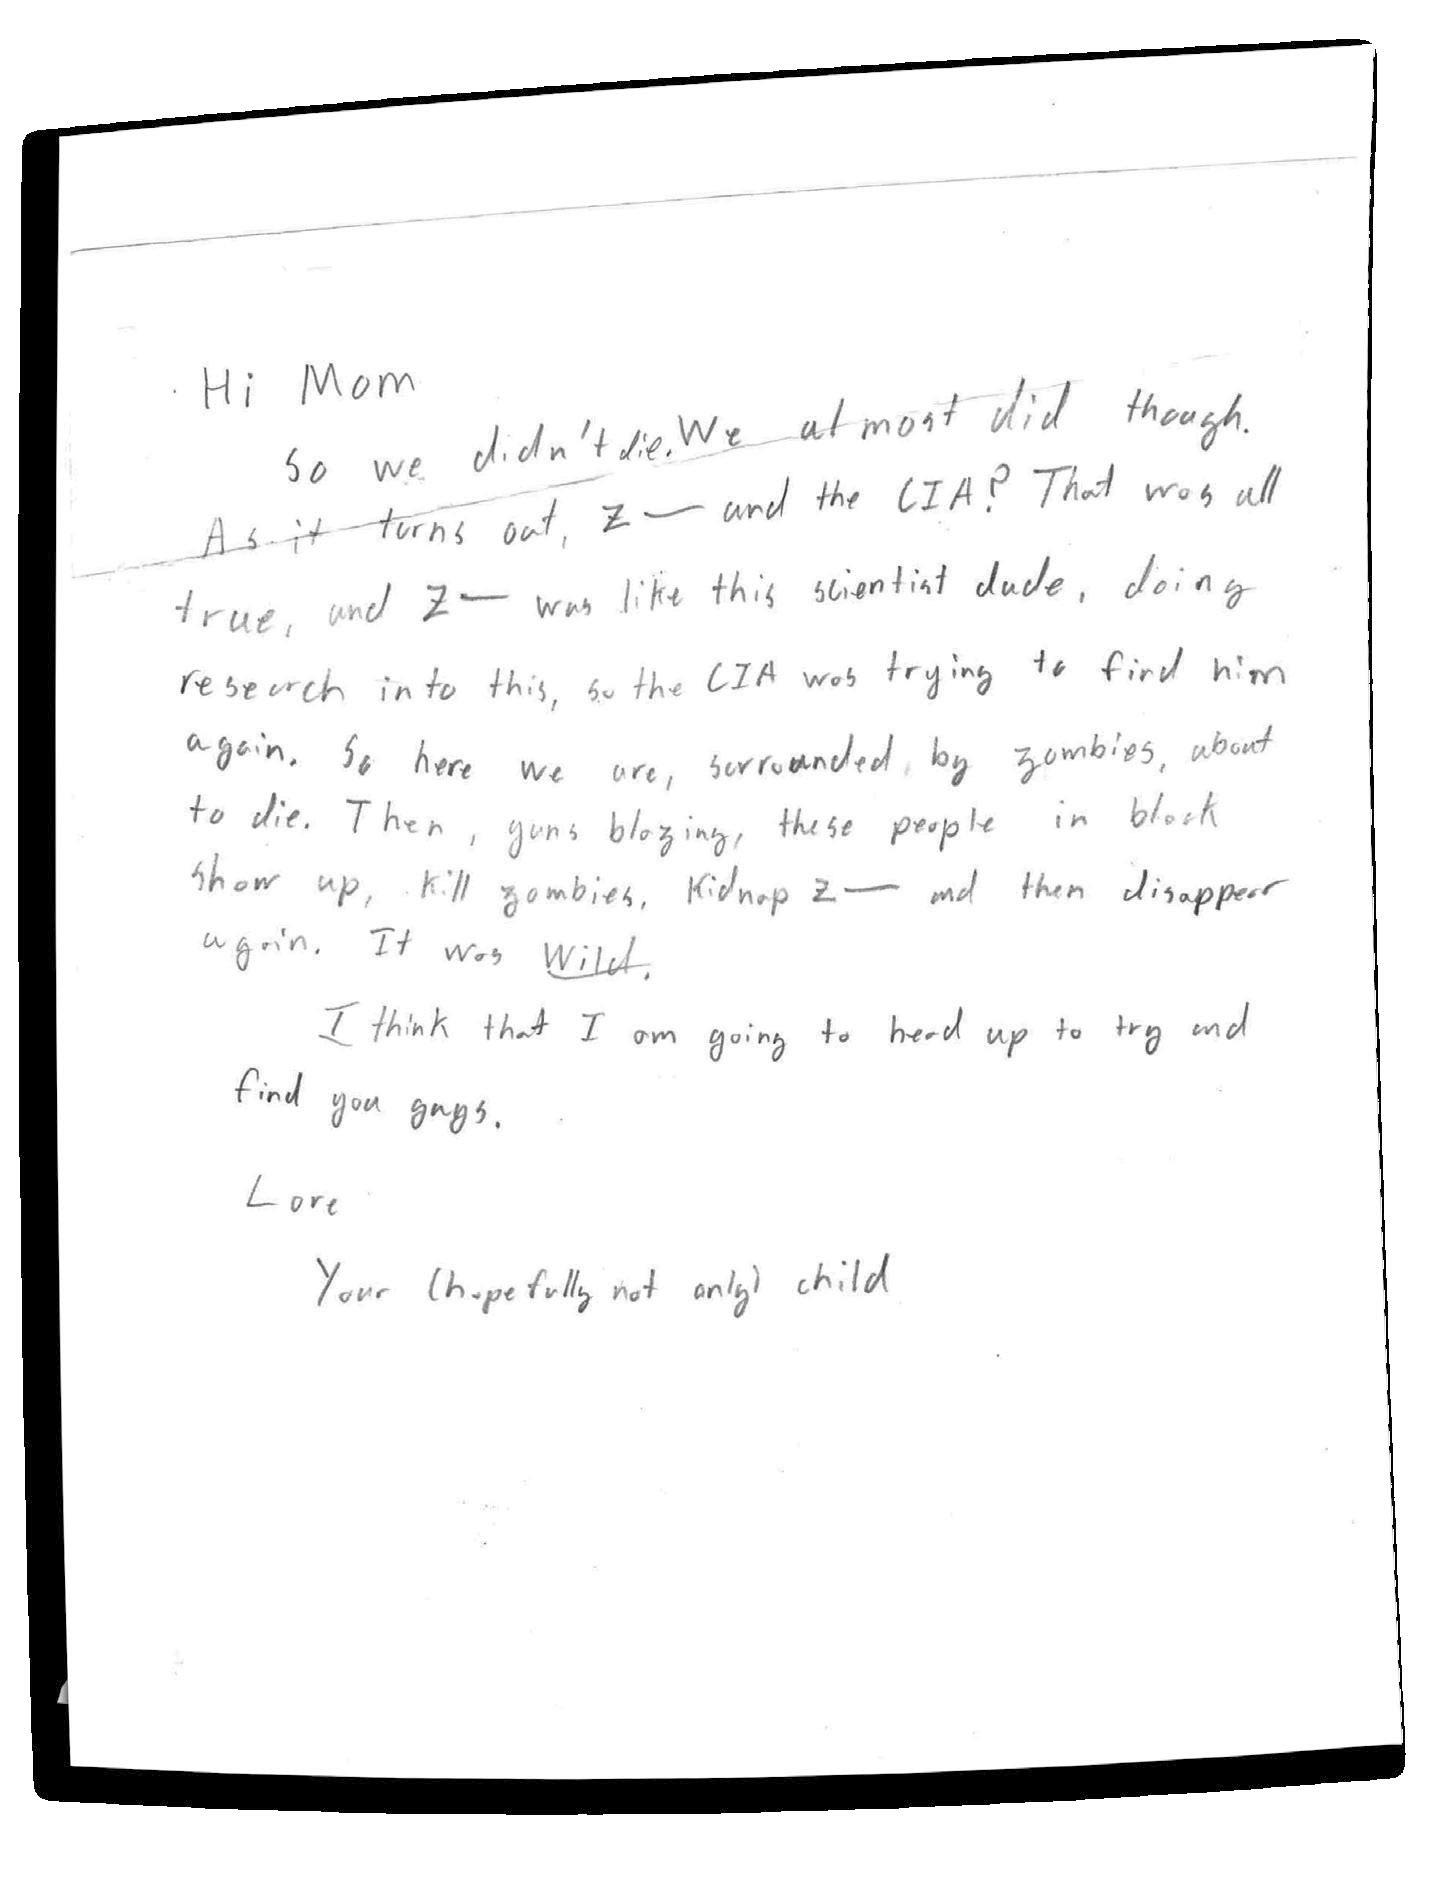 Hi Mom
So we didn't die. We almost did though.
As it turns out, Z— and the CIA? That was all
true, and Z— was like this scientist dude, doing
research into this, so the CIA was trying to find him
again. So here we are, surrounded by zombies, about
to die. Then, guns blazing, these people in black
show up, kill zombies, kidnap Z— and then disappear
again. It was Wild.
I think that I am going to head up to try and
find you guys.
Love
Your (hopefully not only) child